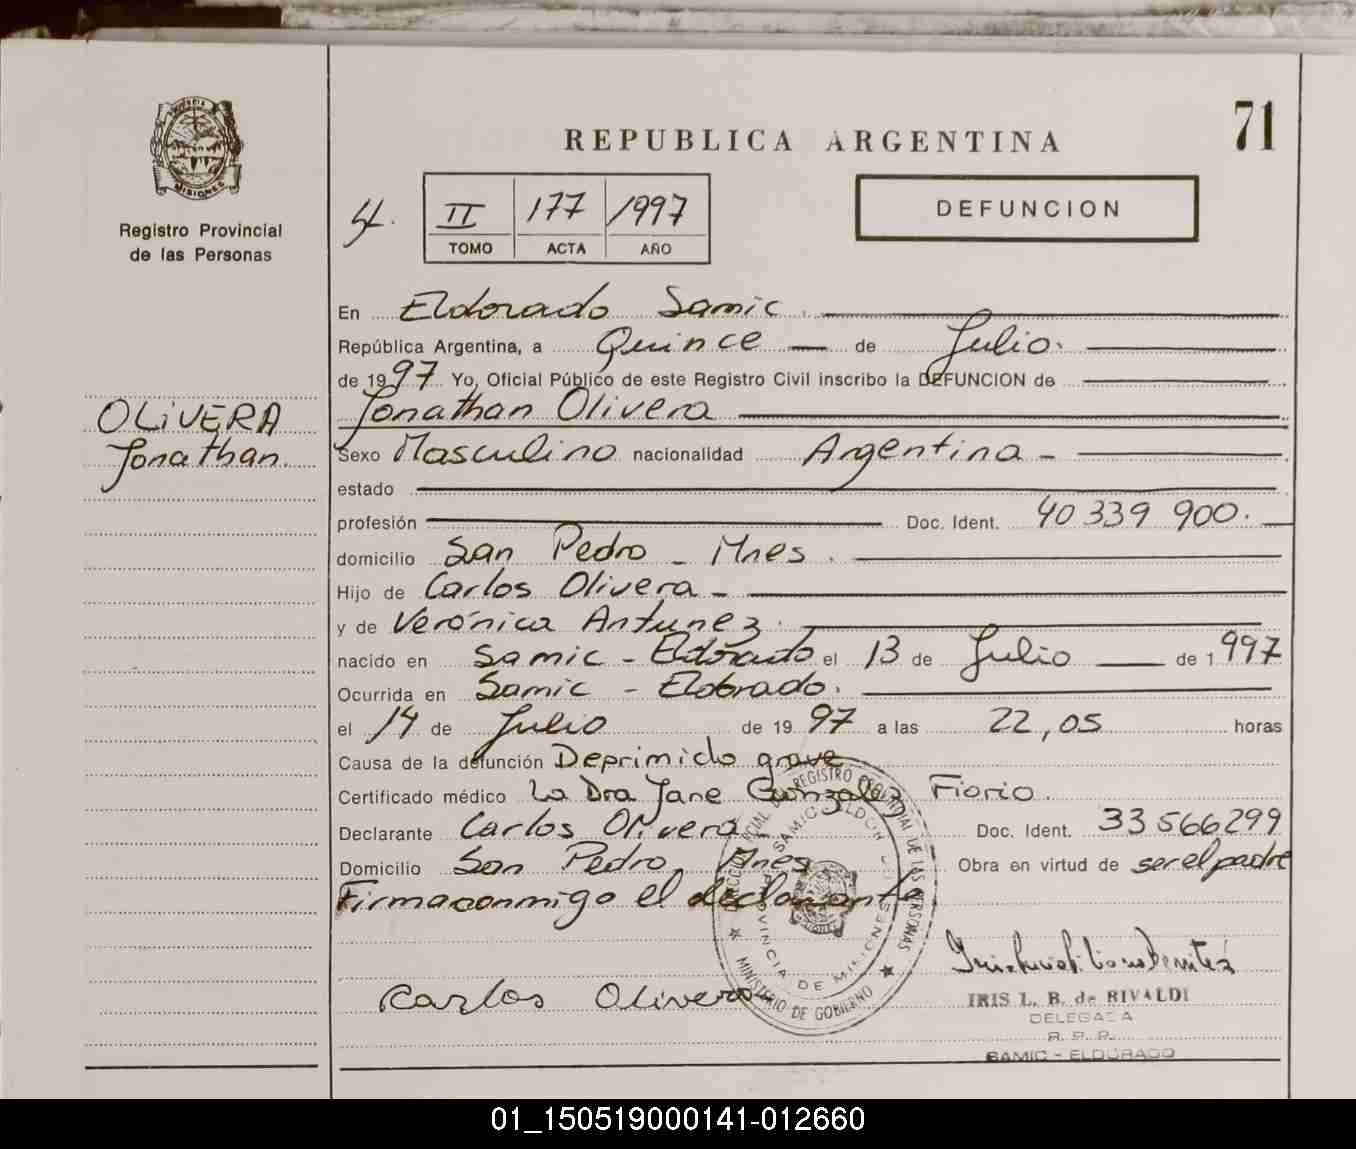 71
REPUBLICA ARGENTINA
MISIONES
Registro Provincial
de las Personas
II 177 1997
TOMO ACTA AÑO
DEFUNCION
En Eldorado Samic.
República Argentina, a Quince de Julio.
de 1997 Yo, Oficial Público de este Registro Civil inscribo la DEFUNCION de
OLIVERA
Jonathan.
Jonathan Olivera
Sexo Masculino nacionalidad Argentina -
estado
profesión Doc. Ident. 40 339 900.
domicilio San Pedro - Mnes.
Hijo de Carlos Olivera -
y de Verónica Antunez.
nacido en Samic - Eldorado el 13 de Julio de 1997
Ocurrida en Samic - Eldorado.
el 14 de Julio de 1997 a las 22,05 horas
Causa de la defunción Deprimido grave
Certificado médico La Dra Jane Gonzalez Fiorio.
Declarante Carlos Olivera Doc. Ident. 33 566299
Domicilio San Pedro Mnes Obra en virtud de ser el padre
Firma conmigo el declarante
Carlos Olivera
IRIS L. B. de RIVALDI
DELEGADA
R. P. P.
SAMIC - ELDORADO
REGISTRO PROVINCIAL DE LAS PERSONAS
SAMIC ELDOR
PROVINCIA DE MISIONES
MINISTERIO DE GOBIERNO
01_150519000141-012660